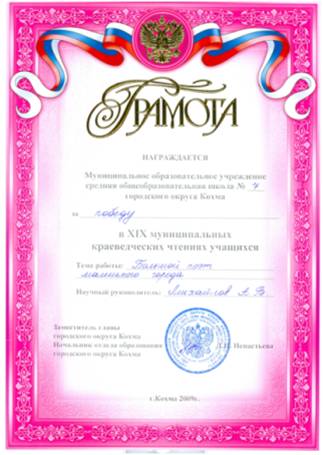 ГРАМОТА
НАГРАЖДАЕТСЯ
Муниципальное образовательное учреждение
средняя общеобразовательная школа № 7
городского округа Кохма
за победу
в XIX муниципальных
краеведческих чтениях учащихся
Тема работы: Большой поэт
маленького города
Научный руководитель: Михайлов А.В.
Заместитель главы
городского округа Кохма
Начальник отдела образования
городского округа Кохма
г.Кохма 2009г.